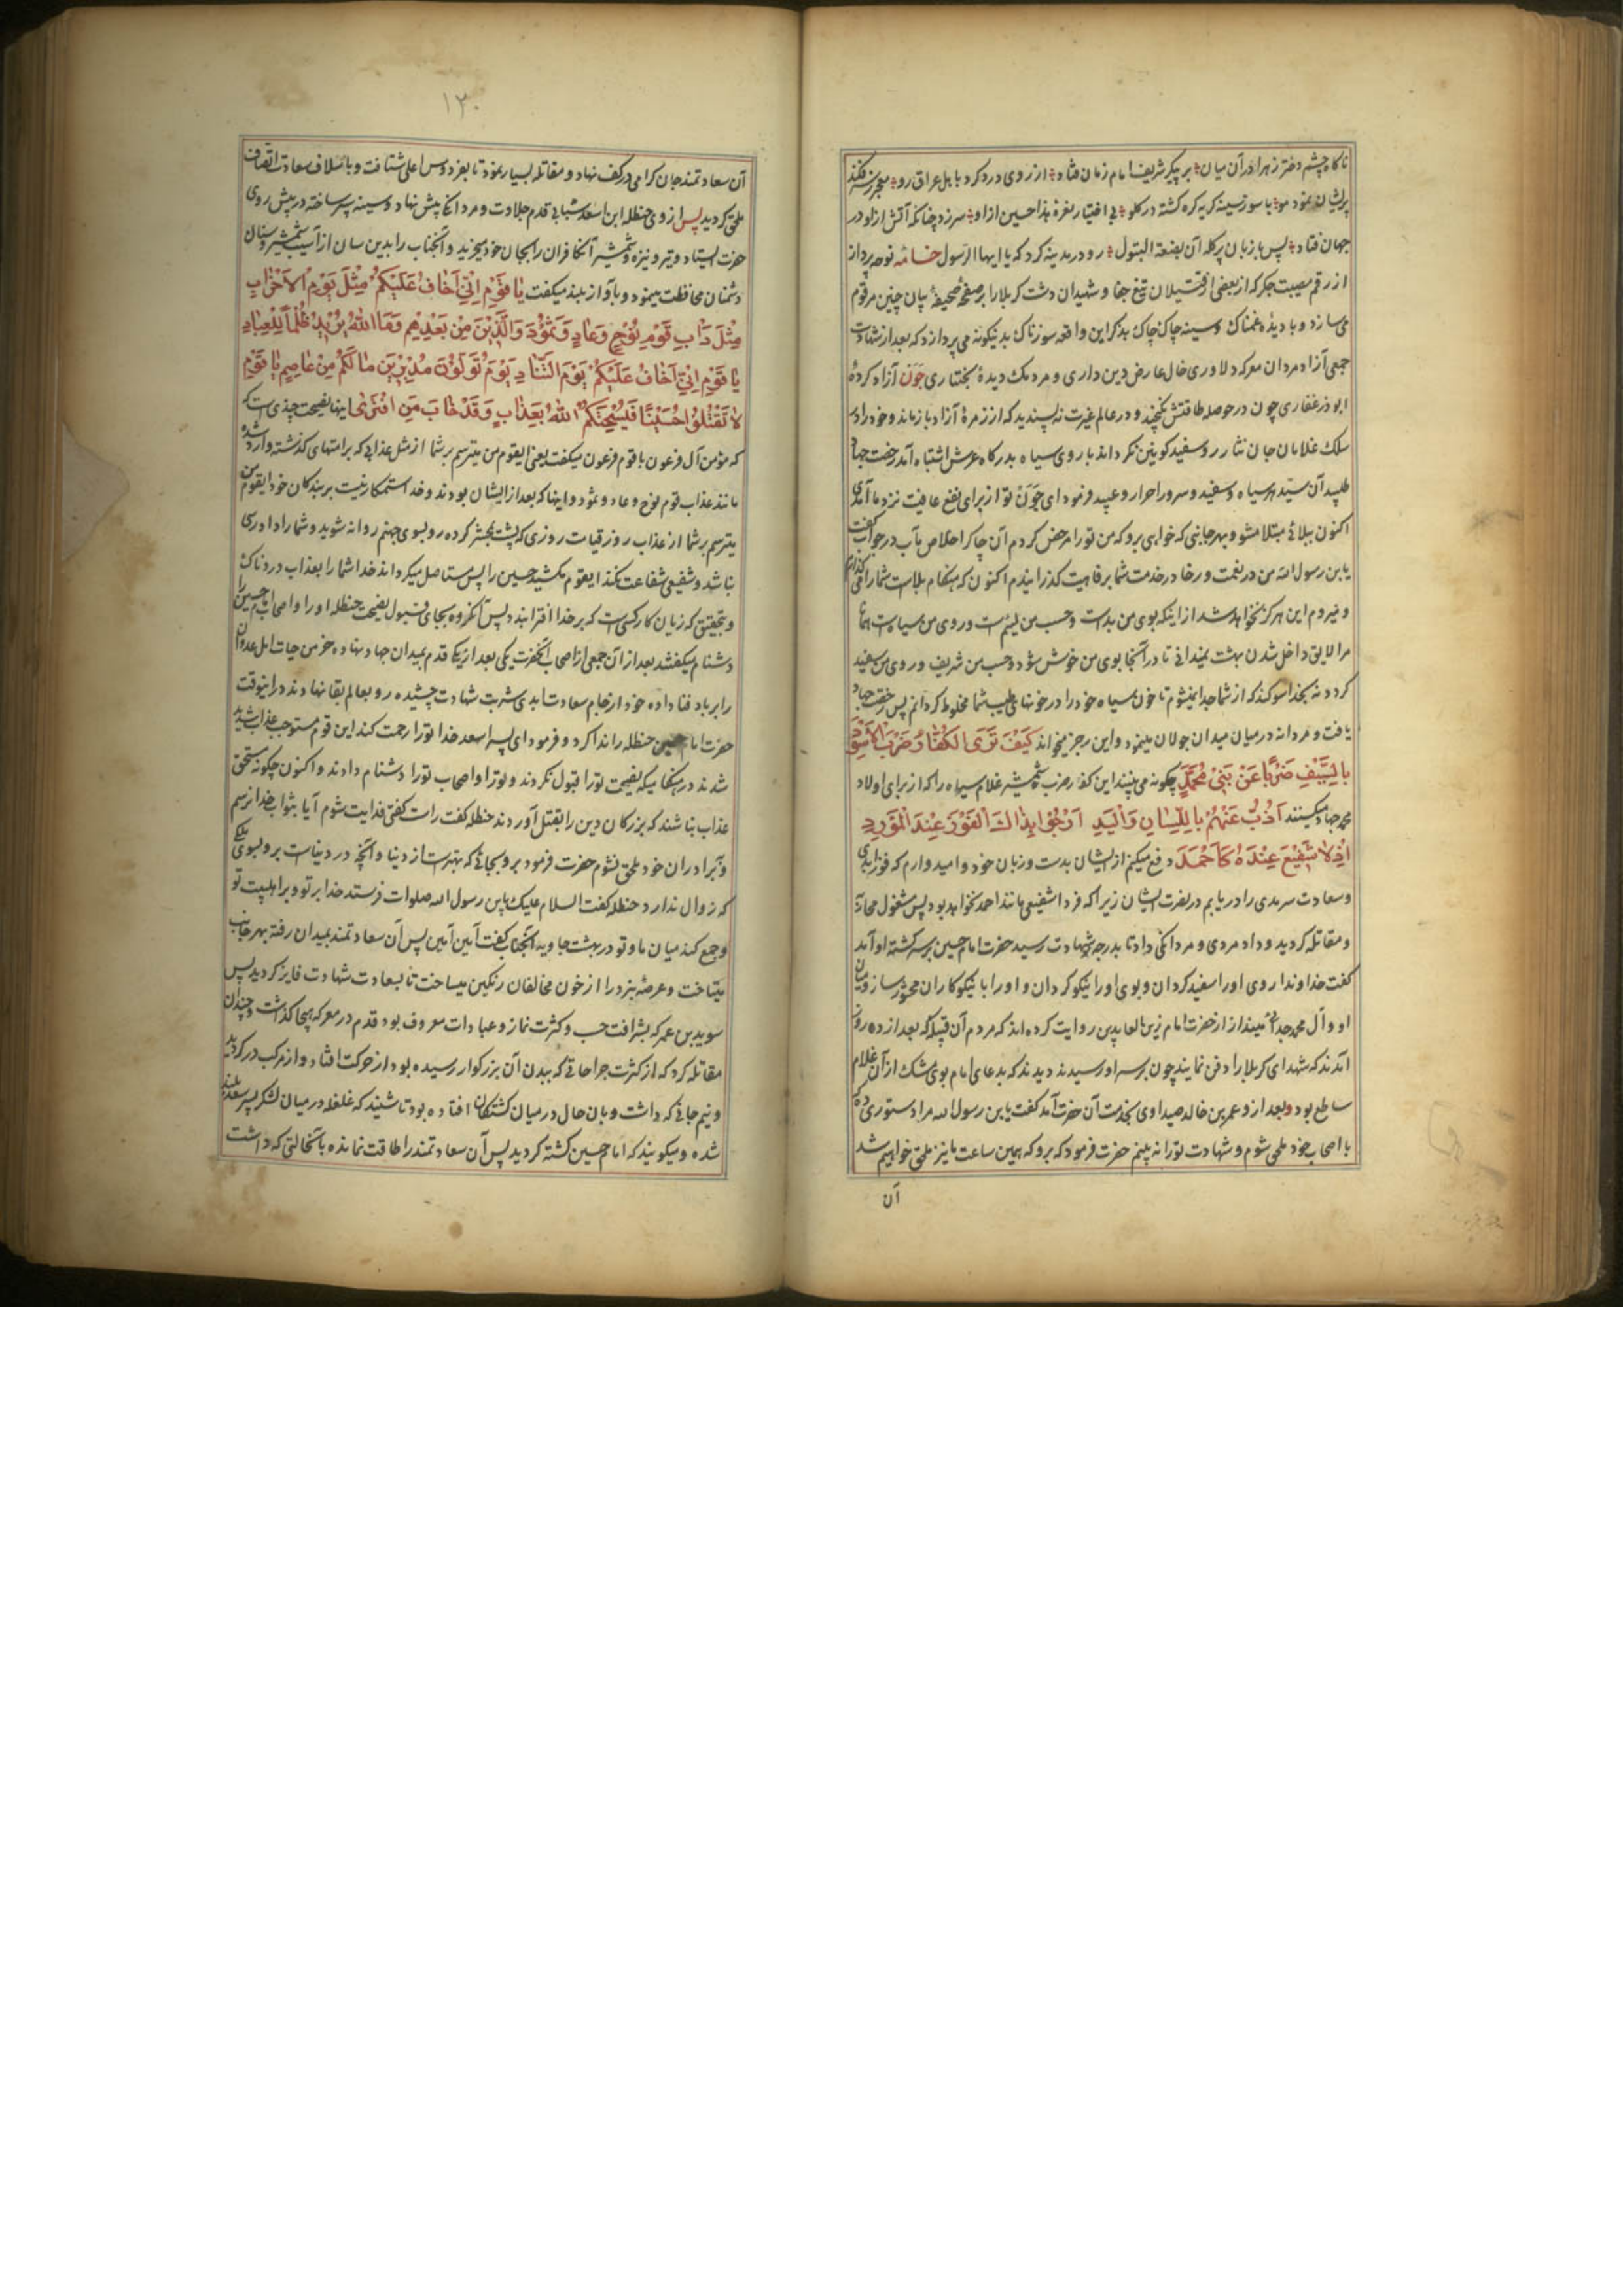 ناکاه چشم دختر زهرا در آن میان بر پیکر شریف امام زمان فتاد از روی درد کرد باهل عراق رو معجر ز سر فکند
پریشان نمود مو با سوز سینه کریه کره کشته در کلو بی اختیار نعرهٔ هذا حسین از او سر زد چنانکه آتش از او در
جهان فتاد پس با زبان پر کله آن بضعة البتول رو در مدینه کرد که یا ایها الرسول خامه نوحه پرداز
از رقم مصیبت جکر که از بعضی از قتیلان تیغ جفا و شهیدان دشت کربلا را بر صفحهٔ صحیفهٔ بیان چنین مرقوم
می سازد و با دیدهٔ غمناک و سینه چاک چاک بذکر این واقعه سوزناک بدینکونه می پردازد که بعد از شهادت
جمعی آزاد مردان معرکه دلاوری خال عارض دین داری و مردمک دیدهٔ بختیاری جون آزاد کردهٔ
ابوذر غفاری چون در حوصله طاقتش نکنجید و در عالم غیرت نه پسندید که از زمرهٔ آزاد باز ماند و خود را در
سلک غلامان جان نثار رو سفید کونین نکرداند با روی سیاه بدرکاه عرش اشتباه آمد رخصت جهاد
طلبید آن سید هر سیاه و سفید و سرور احرار و عبید فرمود ای جون تو از برای نفع عافیت نزد ما آمدی
اکنون ببلای مبتلا مشو و بهر جانبی که خواهی برو که من تو را مرخص کردم آن چاکر اخلاص مآب در جواب گفت
یابن رسول الله من در نعمت و رخا در خدمت شما برفاهیت کذرانیدم اکنون که هنکام بلاست شما را
و میروم این هرکز نخواهد شد از اینکه بوی من بد است و حسب من لئیم است و روی من سیاه است
مرا لایق داخل شدن بهشت نمیدانی تا در آنجا بوی من خوش شود و حسب من شریف و روی من سفید
کردد نه بخدا سوکند که از شما جدا نمیشوم تا خون سیاه خود را در خونهای طیب شما مخلوط کردانم پس رخصت جهاد
یافت و مردانه در میان میدان جولان مینمود و این رجز میخواند کَیْفَ تَرَی الکُفّارُ ضَرْبَ الاَسْوَدِ
بِالسَّیْفِ ضَرْباً عَنْ بَنِی مُحَمَّدٍ چکونه می بینند این کفار ضرب شمشیر غلام سیاه را که از برای اولاد
محمد جهاد میکنند اَذُبُّ عَنْهُمْ بِاللِّسانِ وَالْیَدِ اَرْجُوا بِذاکَ الْفَوْزَ عِنْدَ الْمَوْرِدِ
اِذْ لا شَفِیْعَ عِنْدَهُ کَاَحْمَدَ دفع میکنم از ایشان بدست و زبان خود و امیدوارم که فوز ابدی
و سعادت سرمدی را دریابم در نصرت ایشان زیرا که فردا شفیعی مانند احمد نخواهد بود پس مشغول محاربه
و مقاتله کردید و داد مردی و مردانکی داد تا بدرجه شهادت رسید حضرت امام حسین بر سر کشته او آمد
کفت خداوندا روی او را سفید کردان و بوی او را نیکو کردان و او را با نیکوکاران محشور ساز و میان
او و آل محمد جدائی مینداز از حضرت امام زین العابدین روایت کرده اند که مردم آن قبیله که بعد از ده روز
آمدند که شهدای کربلا را دفن نمایند چون بر سر او رسیدند دیدند که بدعای امام بوی مشک از آن غلام
ساطع بود و بعد از و عمر بن خالد صیداوی بخدمت آن حضرت آمد کفت یابن رسول الله مرا دستوری ده که
با اصحاب خود ملحق شوم و شهادت تو را نه بینم حضرت فرمود که برو که همین ساعت ما نیز ملحق خواهیم شد
آن
۱۲۰
آن سعادتمند جان کرامی در کف نهاد و مقاتله بسیار نمود تا بفردوس اعلی شتافت و باسلاف سعادت اتصاف
ملحق کردید پس از وی حنظله ابن اسعد شبامی قدم جلادت و مردانکی پیش نهاد و سینه سپر ساخته در پیش روی
حضرت ایستاد و تیر و نیزه و شمشیر آن کافران را بجان خود میخرید و آنجناب را بدین سان از آسیب شمشیر و سنان
دشمنان محافظت مینمود و بآواز بلند میکفت یا قَوْمِ اِنّی اَخافُ عَلَیْکُمْ مِثْلَ یَوْمِ الاَحْزابِ
مِثْلَ دَاْبِ قَوْمِ نُوْحٍ وَعادٍ وَثَمُوْدَ وَالَّذِیْنَ مِنْ بَعْدِهِم وَمَا اللهُ یُرِیْدُ ظُلْماً لِلْعِبادِ
یا قَوْمِ اِنّی اَخافُ عَلَیْکُمْ یَوْمَ التَّنادِ یَوْمَ تُوَلُّوْنَ مُدْبِرِیْنَ ما لَکُمْ مِنْ عاصِمٍ یا قَوْمِ
لا تَقْتُلُوا حُسَیْناً فَیُسْحِتَکُمُ اللهُ بِعَذابٍ وَقَدْ خابَ مَنِ افْتَری اینها نصیحت چندی است که
که مؤمن آل فرعون با قوم فرعون میکفت یعنی ایقوم من میترسم بر شما از مثل عذابی که بر امتهای کذشته وارد شد
مانند عذاب قوم نوح و عاد و ثمود و اینها که بعد از ایشان بودند و خدا ستمکار نیست بر بندکان خود ایقوم من
میترسم بر شما از عذاب روز قیامت روزی که پشت بمحشر کرده رو بسوی جهنم روانه شوید و شما را دادرسی
نباشد و شفیعی شفاعت نکند ایقوم مکشید حسین را پس مستاصل میکرداند خدا شما را بعذاب دردناک
و بتحقیق که زیان کار کسی است که بر خدا افترا بندد پس آنکروه بجای قبول نصیحت حنظله او را و اصحاب امام حسین را
دشنام میکفتند بعد از آن جمعی از اصحاب آنحضرت یکی بعد از یکی قدم بمیدان جهاد نهاده خرمن حیات اهل عدوان
را بر باد فنا داده خود از جام سعادت ابدی شربت شهادت چشیده رو بعالم بقا نهادند در اینوقت
حضرت امام حسین حنظله را ندا کرد و فرمود ای پسر اسعد خدا تو را رحمت کند این قوم مستوجب عذاب شدید
شدند در هنکامیکه نصیحت تو را قبول نکردند و تو را و اصحاب تو را دشنام دادند و اکنون چکونه مستحق
عذاب نباشند که بزرکان دین را بقتل آوردند حنظله کفت راست کفتی فدایت شوم آیا بثواب خدا نرسم
و ببرادران خود ملحق نشوم حضرت فرمود برو بجائی که بهتر است از دنیا و آنچه در دنیاست برو بسوی ملکی
که زوال ندارد حنظله کفت السلام علیک یابن رسول الله صلوات فرستد خدا بر تو و بر اهلبیت تو
و جمع کند میان ما و تو در بهشت جاوید آنجناب کفت آمین آمین پس آن سعادتمند بمیدان رفته بهر جانب
میتاخت و عرصهٔ نبرد را از خون مخالفان رنکین میساخت تا بسعادت شهادت فایز کردید پس
سوید بن عمر که بشرافت حسب و کثرت نماز و عبادات معروف بود قدم در معرکه هیجا کذاشت و چندان
مقاتله کرد که از کثرت جراحاتی که ببدن آن بزرکوار رسیده بود از حرکت افتاد و از مرکب در کردید
و نیم جانی که داشت و بان حال در میان کشتکان افتاده بود تا شنید که غلغله در میان لشکر پسر سعد بلند
شده و میکویند که امام حسین کشته کردید پس آن سعادتمند را طاقت نمانده بآنحالتی که داشت